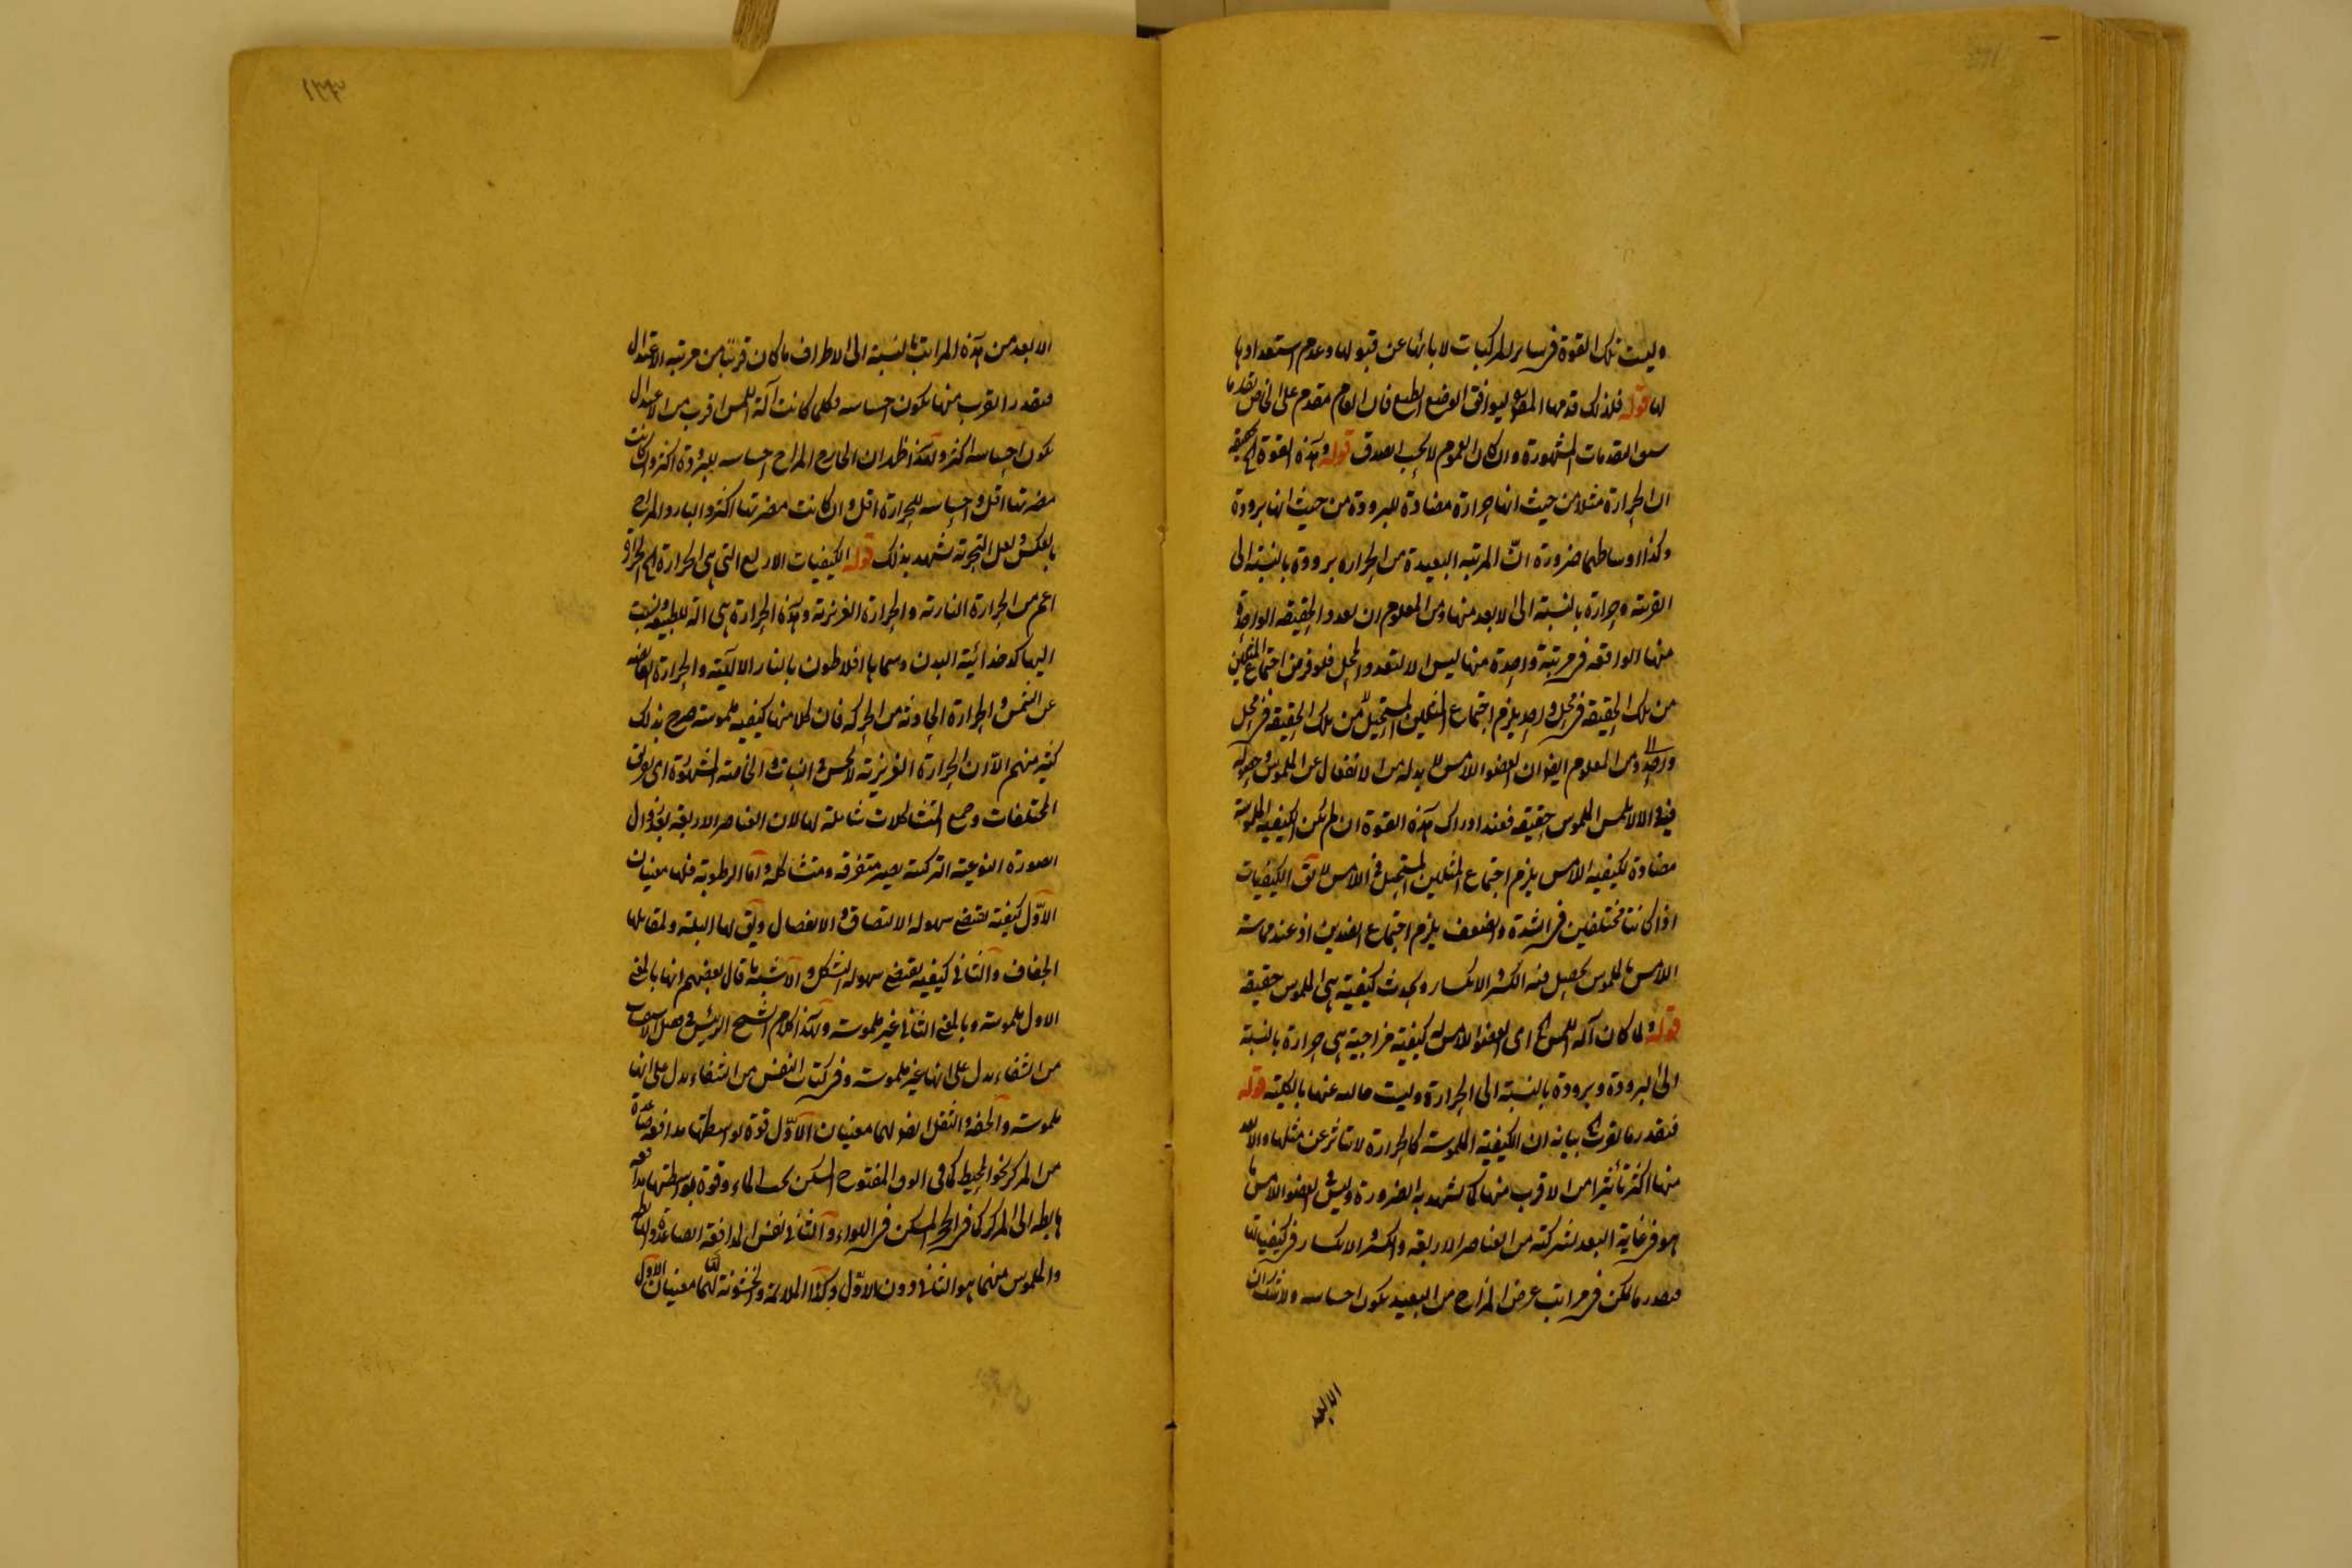 وليست تلك القوة في سائر المركبات لا بائها عن قبولها وعدم استعدادها
لها قوله فلذلك قدمها المص ليوافق الوضع الطبع فان العام مقدم على الخاص تقدما
سوى المقدمات المشهورة وان كان العموم لا بحسب الصدق قوله وهذه القوة الخ تحقيقه
ان الحرارة مثلا من حيث انها حرارة مضادة للبرودة من حيث انها برودة
وكذا اوساطهما ضرورة ان المرتبه البعيدة من الحراره برودة بالنسبة الى
القريبة وحرارة بالنسبة الى الابعد منها ومن المعلوم ان تعدد الحقيقه الواحدة
منها الواقعه في مرتبة واحدة منها ليس الا لتعدد المحل فلو فرض اجتماع المثلين
من تلك الحقيقه في محل واحد يلزم اجتماع المثلين المستحيل من تلك الحقيقه في محل
واحد ومن المعلوم ايضا ان العضو اللامس لا بد له من الانفعال عن الملموس وحصوله
فيه والا لا يلمس الملموس حقيقه فعند ادراك هذه القوة ان لم تكن الكيفية الملموسة
مضادة لكيفية اللامس يلزم اجتماع المثلين المستحيل في اللامس لا يق الكيفيات
اذا كانتا مختلفين في الشدة والضعف يلزم اجتماع الضدين اذ عند مماسة
اللامس بالملموس يحصل فيه الكسر والانكسار ويحدث كيفية هي الملموس حقيقه
قوله ولما كان آلة اللمس الخ اى العضو اللامس له كيفية مزاجية هي حرارة بالنسبة
الى البرودة وبرودة بالنسبة الى الحرارة وليست خاليه عنها بالكلية قوله
فبقدر ما يقرب الخ بيانه ان الكيفية الملموسة كالحرارة لا تتاثر عن مثلها والابعد
منها اكثر تأثيرا من الاقرب منها كما يشهد به الضرورة وليس العضو اللامس ما
هو في غاية البعد لتركبه من العناصر الاربعه والكسر والانكسار في كيفياتها
فبقدر ما يكن في مراتب عرض المزاج من البعيد يكون احساسه ولا شك ان
الابعد
الابعد من هذه المراتب بالنسبة الى الاطراف ما كان قريبا من مرتبه الاعتدال
فبقدر القرب منها يكون احساسه فكلما كانت آلة اللمس اقرب من الاعتدال
يكون احساسه اكثر وبهذا ظهر ان الحار المزاج احساسه للبرودة اكثر وان كانت
مضرتها اقل واحساسه للحرارة اقل وان كانت مضرتها اكثر والبارد المزاج
بالعكس ولعل التجربة تشهد بذلك قوله الكيفيات الاربع التى هى الحرارة الخ الحرارة
اعم من الحرارة النارية والحرارة الغريزية وهذه الحرارة هى آلة للطبيعه ونسبت
اليها كدخدائية البدن وسماها افلاطون بالنار الالهية والحرارة الفائضه
عن الشمس والحرارة الحادثة من الحركه فان كلا منها كيفية ملموسة صرح بذلك
كثير منهم الا ان الحرارة الغريزية لا تحس فى النبات والخاصة المشهورة اى تفريق
المختلفات وجمع المتشاكلات شاملة لها لان العناصر الاربعة بعد زوال
الصورة النوعية التركبية يصير متفرقه ومتشاكله واما الرطوبة فلها معنيان
الاول كيفية تقتضى سهولة الالتصاق والانفصال ويق لها البلة ولمقابلها
الجفاف والثانى كيفية يقتضى سهوله التشكل والاشبه ما قال بعضهم انها بالمعنى
الاول ملموسة وبالمعنى الثانى غير ملموسة ولهذا كلام الشيخ الرئيس فى فصل الاسطقسات
من الشفاء يدل على انها غير ملموسة وفى كتاب النفس من الشفاء يدل على انها
ملموسة والخفه والثقل ايضا لهما معنيان الاول قوة بواسطتها مدافعه صاعدة
من المركز نحو المحيط كما فى المفتوح المسكن تحت الماء وقوة بواسطتها مدافعه
هابطه الى المركز كما فى الحجر المسكن فى الهواء والثانى نفس المدافعة الصاعدة والهابطه
والملموس منهما هو الثانى دون الاول وكذا الملاسة والخشونة لهما معنيان الاول